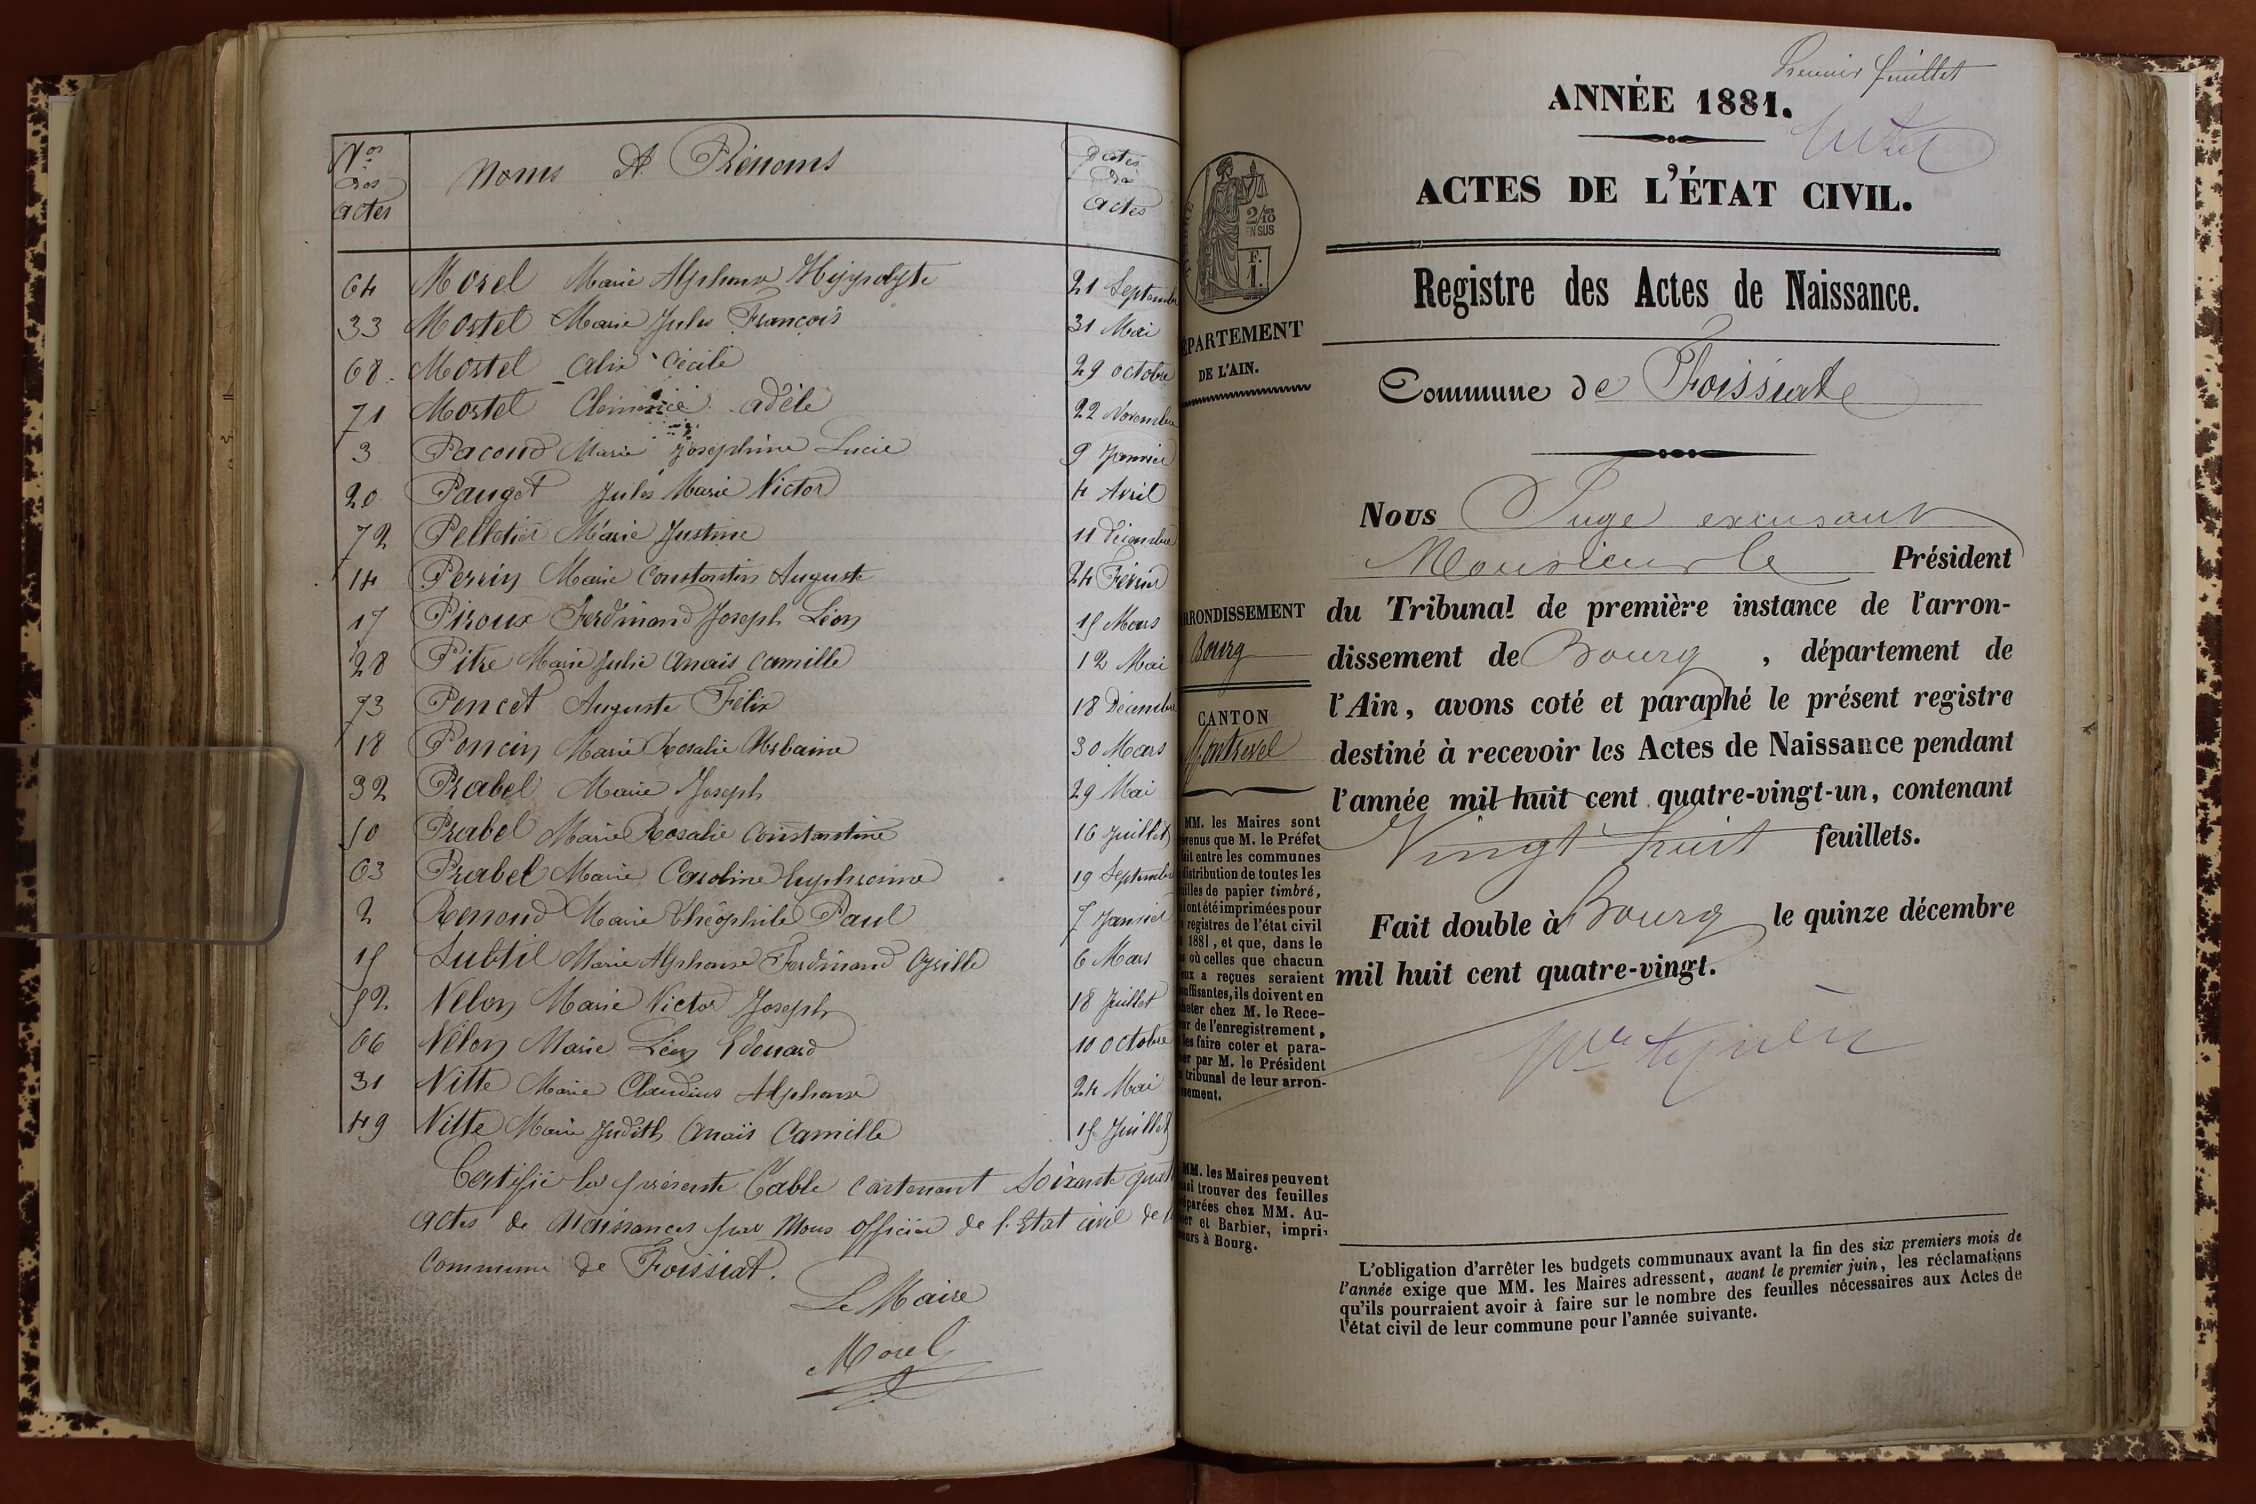 Nos des actes
Noms et Prénoms
Dates des actes
64 Morel Marie Alphonse Hyppolyte 21 Septembre
33 Mortel Marie Jules François 31 Mai
68 Mortel Alix Cécile 29 octobre
71 Mortel Clémence adèle 22 Novembre
3 Pacoud Marie Joséphine Lucie 9 Janvier
20 Pauget Jules Marie Victor 4 Avril
72 Pelletier Marie Justine 11 Décembre
14 Perrin Marie Constantin Auguste 24 Février
17 Piroux Ferdinand Joseph Léon 15 Mars
28 Pitre Marie Julie Anaïs Camille 12 Mai
73 Poncet Auguste Félix 18 Décembre
18 Poncin Marie Rosalie Urbaine 30 Mars
32 Prabel Marie Joseph 29 Mai
50 Prabel Marie Rosalie Constantine 16 Juillet
63 Prabel Marie Caroline Euphrosine 19 Septembre
2 Renoud Marie Théophile Paul 7 Janvier
15 Subtil Marie Alphonse Ferdinand 6 Mars
52 Vélon Marie Victor Joseph 18 Juillet
66 Vélon Marie Léon Edouard 10 octobre
31 Vitte Marie Claudius Alphonse 24 Mai
49 Vitte Marie Judith Anaïs Camille 15 Juillet
Certifié la présente Table contenant soixante
actes de Naissances par Nous officier de l'Etat civil de
commune de Foissiat.
Le Maire
Morel
Premier feuillet
ANNÉE 1881.
ACTES DE L'ÉTAT CIVIL.
2/10
EN SUS
F.
1.
Registre des Actes de Naissance.
DÉPARTEMENT
DE L'AIN.
Commune de Foissiat
Nous Juge excusant
Monsieur le Président
du Tribunal de première instance de l'arron-
dissement de Bourg, département de
l'Ain, avons coté et paraphé le présent registre
destiné à recevoir les Actes de Naissance pendant
l'année mil huit cent quatre-vingt-un, contenant
Vingt huit feuillets.
Fait double à Bourg le quinze décembre
mil huit cent quatre-vingt.
ARRONDISSEMENT
Bourg
CANTON
Montrevel
MM. les Maires sont
prévenus que M. le Préfet
fait entre les communes
distribution de toutes les
feuilles de papier timbré,
ont été imprimées pour
registres de l'état civil
1881, et que, dans le
où celles que chacun
eux a reçues seraient
insuffisantes, ils doivent en
acheter chez M. le Rece-
veur de l'enregistrement,
les faire coter et para-
pher par M. le Président
tribunal de leur arron-
dissement.
MM. les Maires peuvent
aussi trouver des feuilles
préparées chez MM. Au-
et Barbier, impri-
meurs à Bourg.
L'obligation d'arrêter les budgets communaux avant la fin des six premiers mois de
l'année exige que MM. les Maires adressent, avant le premier juin, les réclamations
qu'ils pourraient avoir à faire sur le nombre des feuilles nécessaires aux Actes de
l'état civil de leur commune pour l'année suivante.